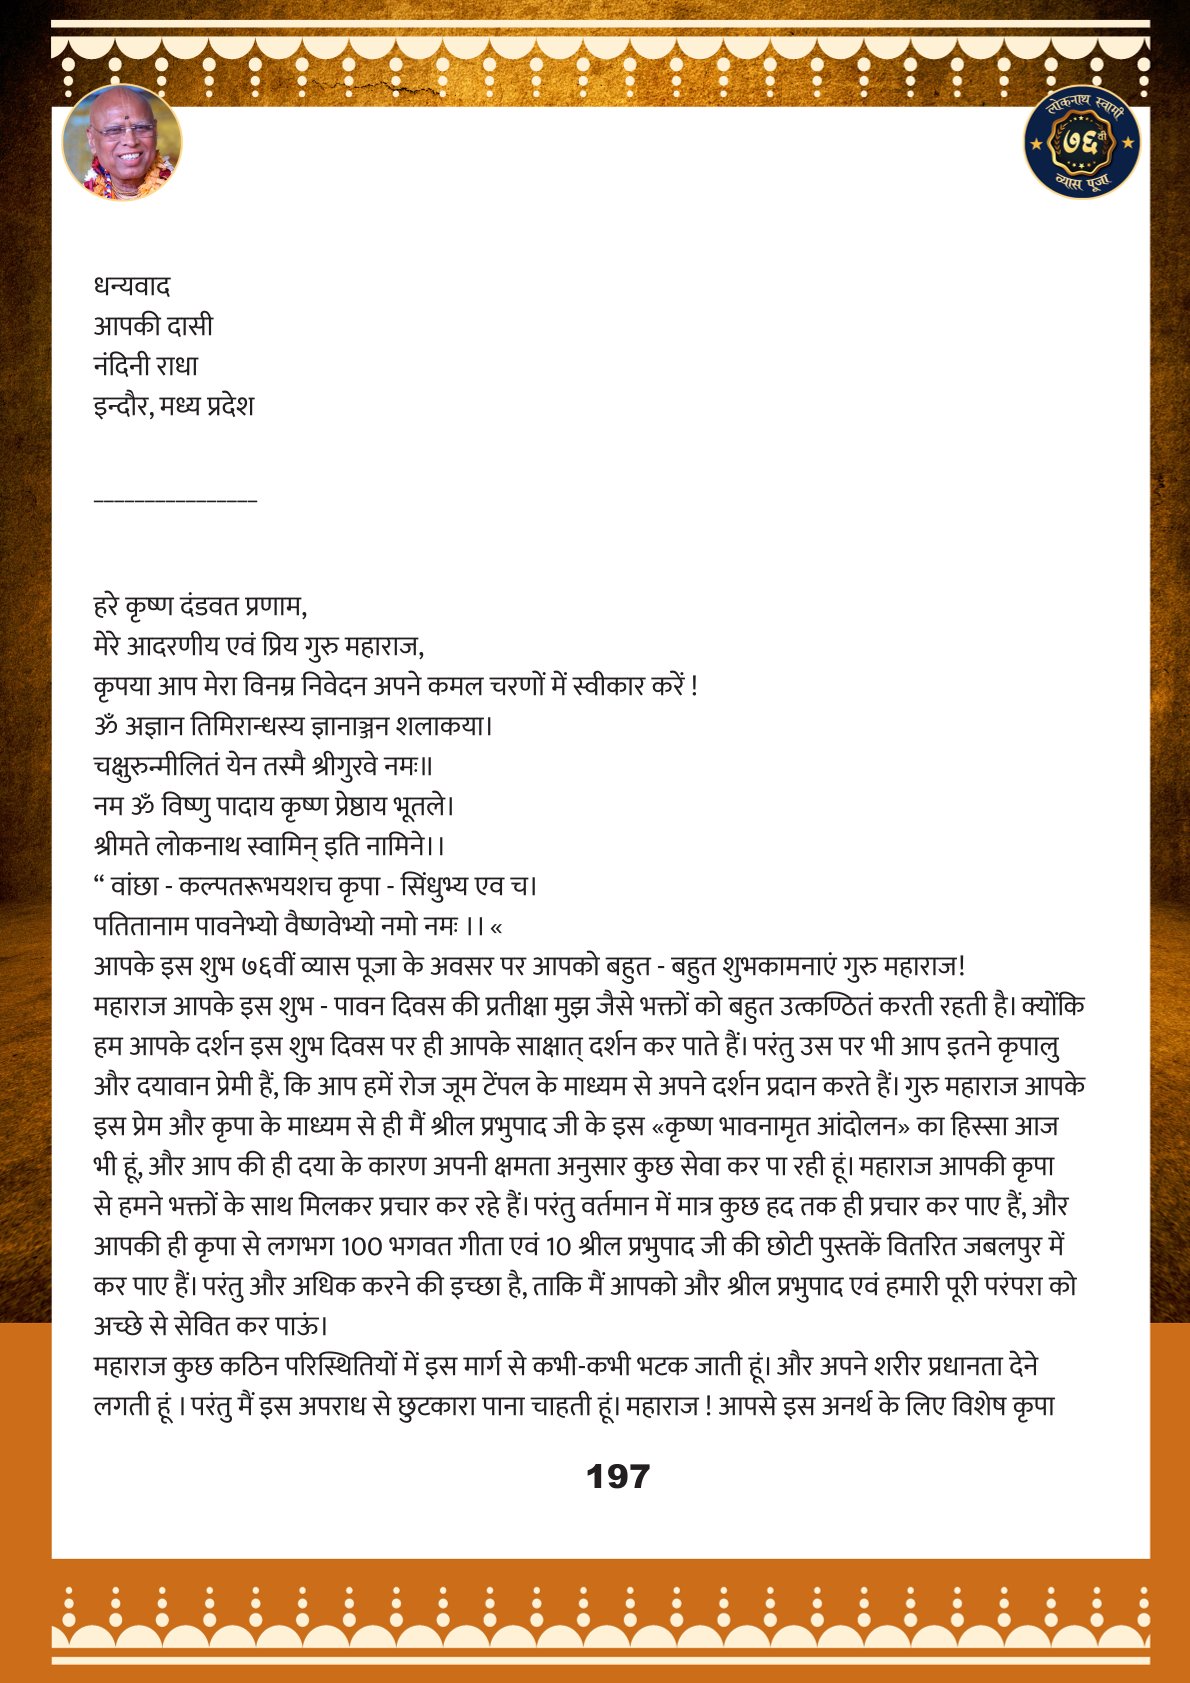 लोकनाथ स्वामी
७६वी
व्यास पूजा
धन्यवाद
आपकी दासी
नंदिनी राधा
इन्दौर, मध्य प्रदेश
________________
हरे कृष्ण दंडवत प्रणाम,
मेरे आदरणीय एवं प्रिय गुरु महाराज,
कृपया आप मेरा विनम्र निवेदन अपने कमल चरणों में स्वीकार करें !
ॐ अज्ञान तिमिरान्धस्य ज्ञानाञ्जन शलाकया।
चक्षुरुन्मीलितं येन तस्मै श्रीगुरवे नमः॥
नम ॐ विष्णु पादाय कृष्ण प्रेष्ठाय भूतले।
श्रीमते लोकनाथ स्वामिन् इति नामिने।।
“ वांछा - कल्पतरूभयशच कृपा - सिंधुभ्य एव च।
पतितानाम पावनेभ्यो वैष्णवेभ्यो नमो नमः ।। «
आपके इस शुभ ७६वीं व्यास पूजा के अवसर पर आपको बहुत - बहुत शुभकामनाएं गुरु महाराज!
महाराज आपके इस शुभ - पावन दिवस की प्रतीक्षा मुझ जैसे भक्तों को बहुत उत्कण्ठितं करती रहती है। क्योंकि
हम आपके दर्शन इस शुभ दिवस पर ही आपके साक्षात् दर्शन कर पाते हैं। परंतु उस पर भी आप इतने कृपालु
और दयावान प्रेमी हैं, कि आप हमें रोज जूम टेंपल के माध्यम से अपने दर्शन प्रदान करते हैं। गुरु महाराज आपके
इस प्रेम और कृपा के माध्यम से ही मैं श्रील प्रभुपाद जी के इस «कृष्ण भावनामृत आंदोलन» का हिस्सा आज
भी हूं, और आप की ही दया के कारण अपनी क्षमता अनुसार कुछ सेवा कर पा रही हूं। महाराज आपकी कृपा
से हमने भक्तों के साथ मिलकर प्रचार कर रहे हैं। परंतु वर्तमान में मात्र कुछ हद तक ही प्रचार कर पाए हैं, और
आपकी ही कृपा से लगभग 100 भगवत गीता एवं 10 श्रील प्रभुपाद जी की छोटी पुस्तकें वितरित जबलपुर में
कर पाए हैं। परंतु और अधिक करने की इच्छा है, ताकि मैं आपको और श्रील प्रभुपाद एवं हमारी पूरी परंपरा को
अच्छे से सेवित कर पाऊं।
महाराज कुछ कठिन परिस्थितियों में इस मार्ग से कभी-कभी भटक जाती हूं। और अपने शरीर प्रधानता देने
लगती हूं । परंतु मैं इस अपराध से छुटकारा पाना चाहती हूं। महाराज ! आपसे इस अनर्थ के लिए विशेष कृपा
197